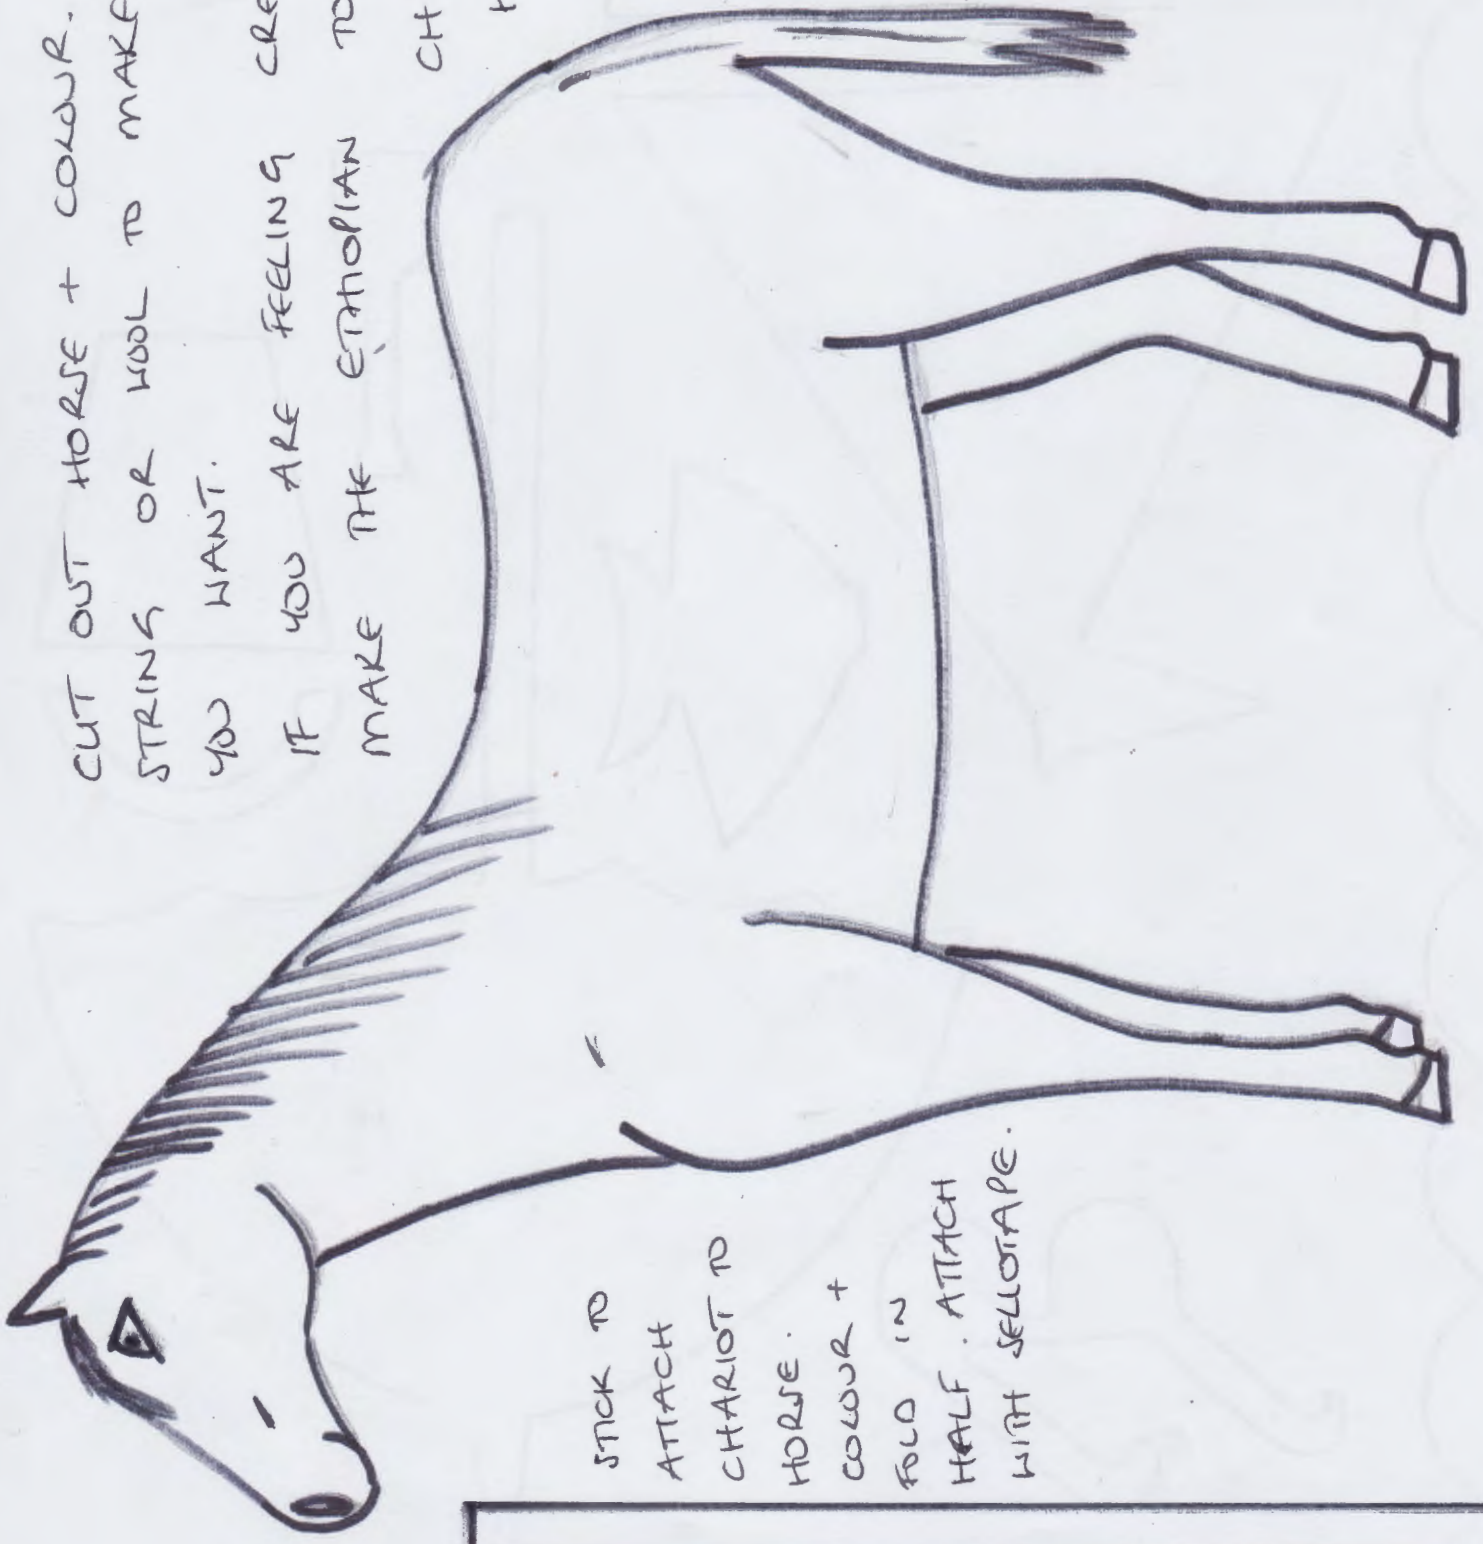 CUT OUT HORSE + COLOUR.
STRING OR WOOL TO MAKE
YOU WANT.
IF YOU ARE FEELING CRE
MAKE THE ETHIOPIAN TO
CH
STICK TO
ATTACH
CHARIOT TO
HORSE.
COLOUR +
FOLD IN
HALF. ATTACH
WITH SELLOTAPE.